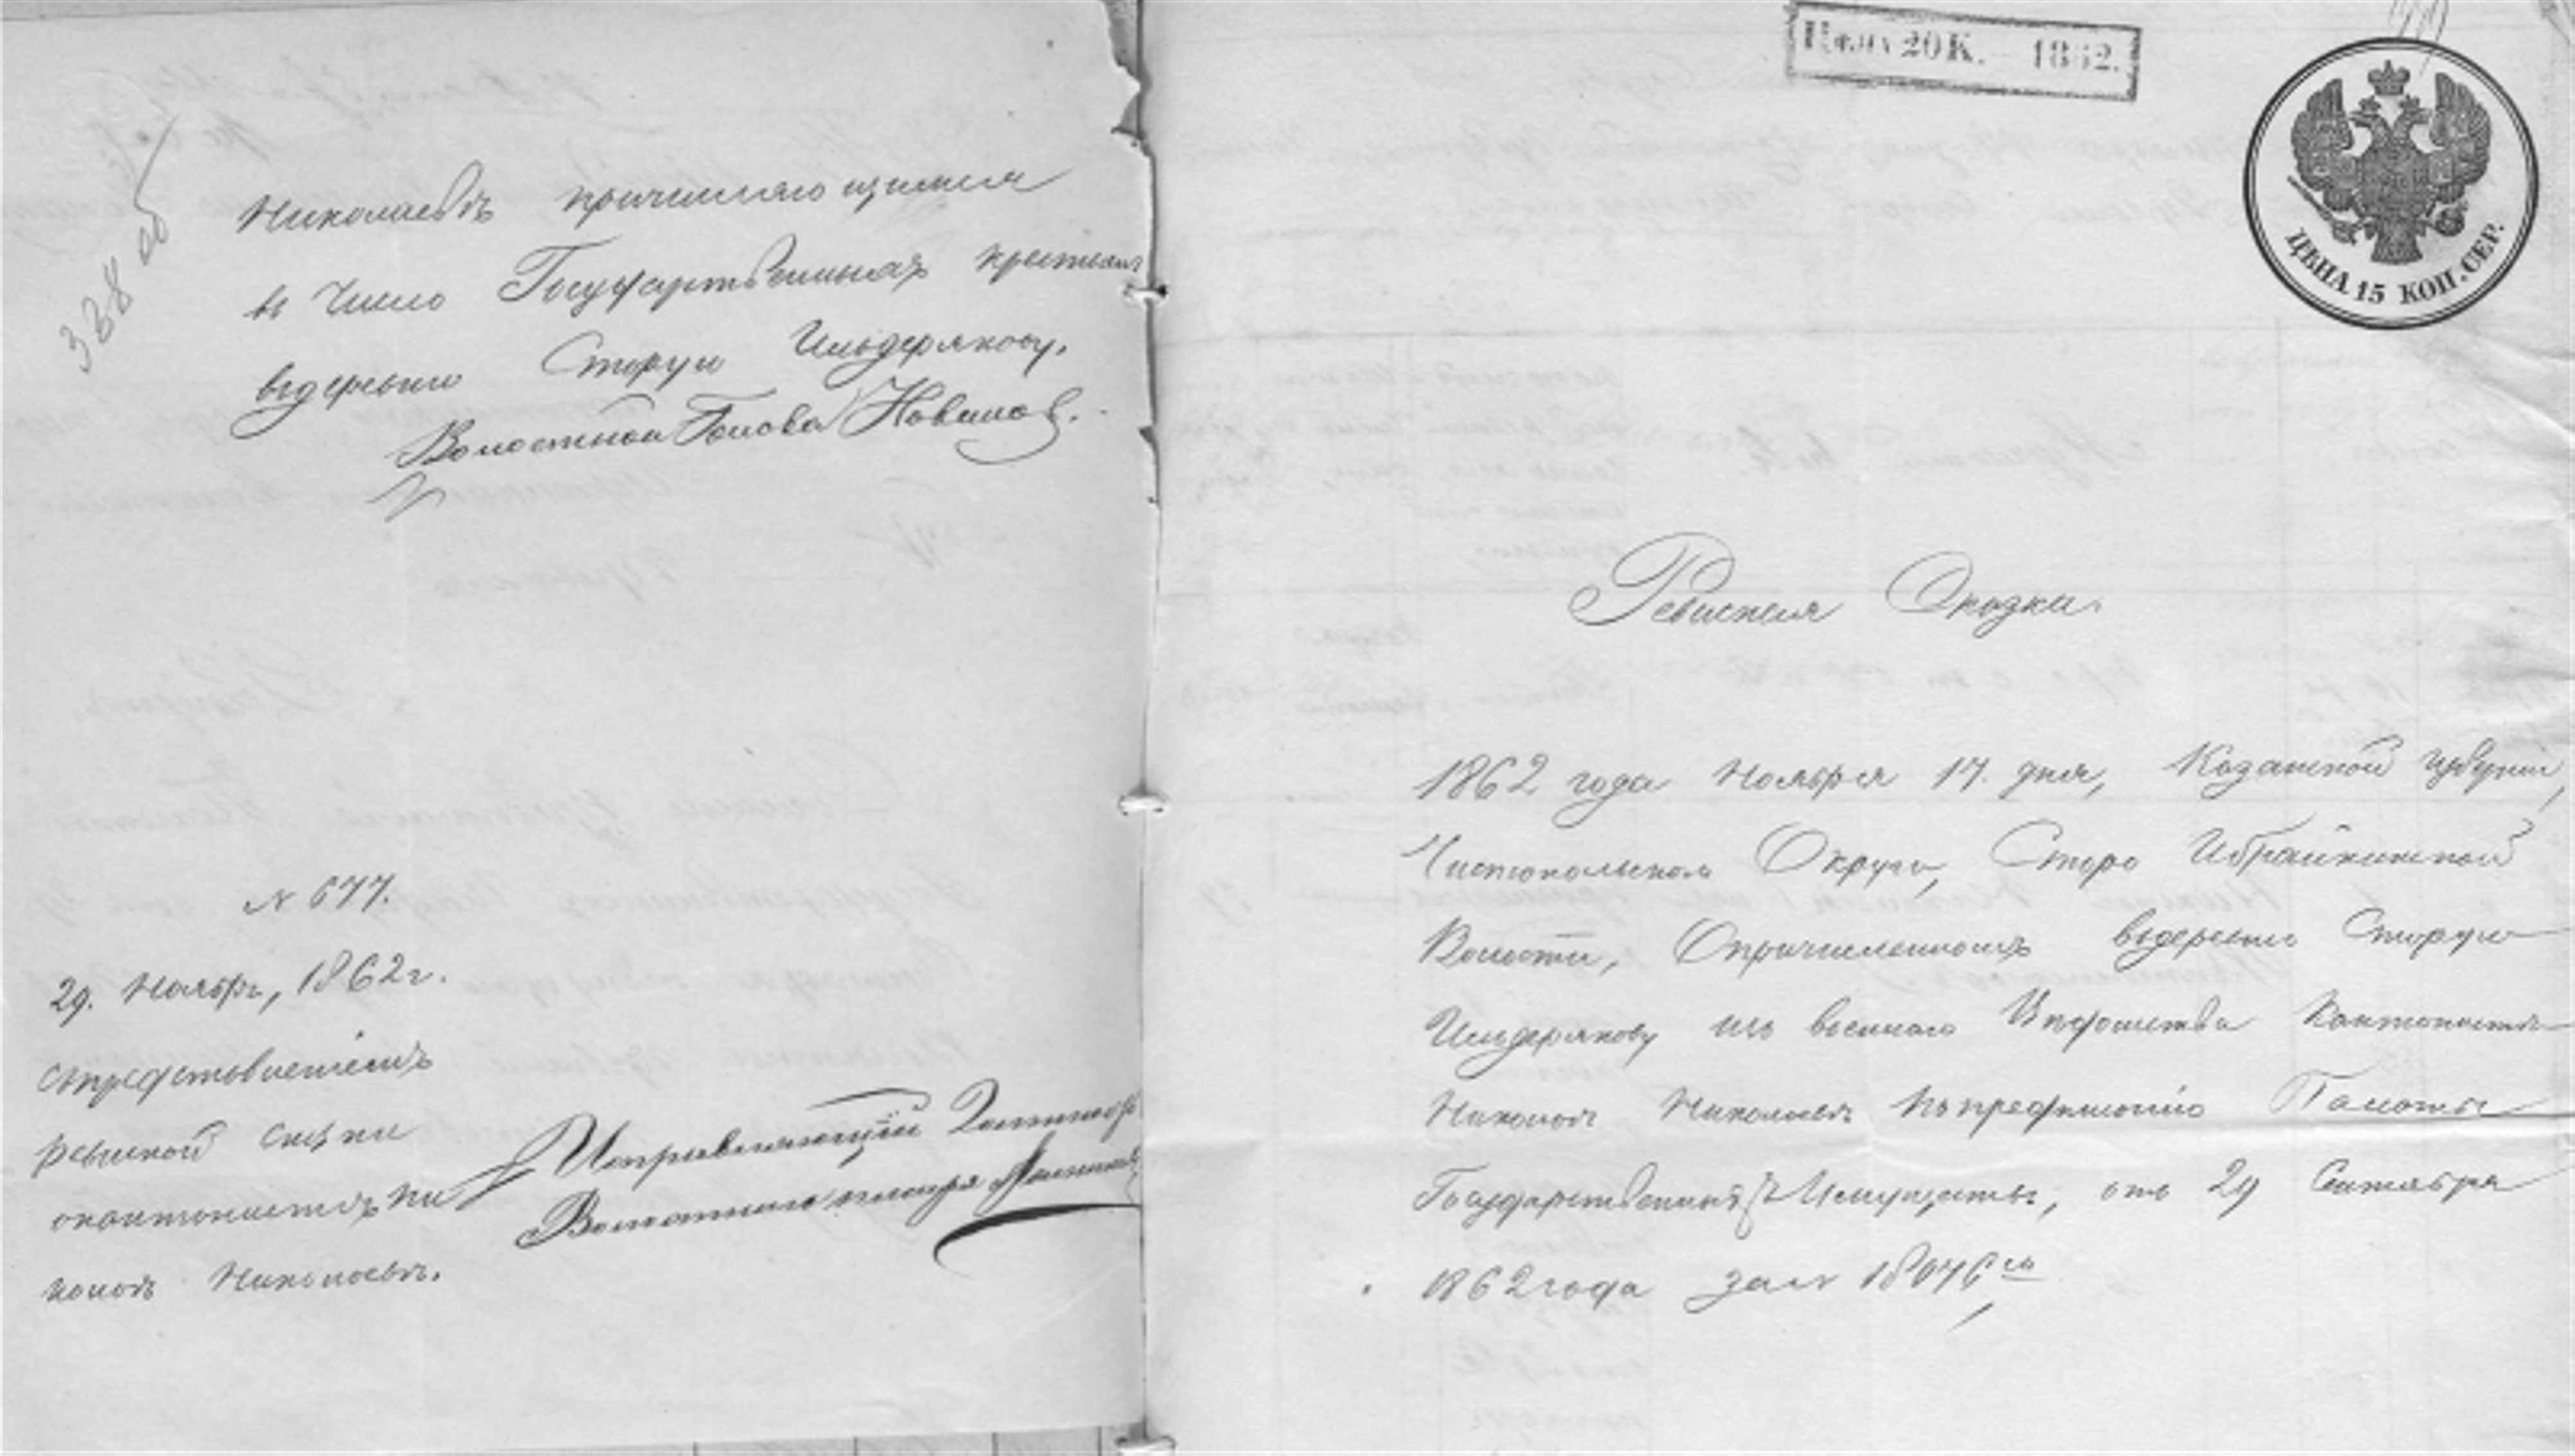 328 об
Николаевъ причисляющимся
въ число Государственныхъ крестьянъ
вдеревню Старую Ильдерякову.
Волостной Голова Новиков.
N 677.
29. Ноября, 1862 г.
спредставленіемъ
ревиской скаски
окантонистъ Ни
коноъ Николаевъ.
Исправляющій
Волостнаго писаря
Цена 20 К. - 1862.
ЦѢНА 15 КОП. СЕР.
Ревиския Сказка.
1862 года Ноября 17. дня, Казанской губерніи,
Чистопольскаго Округа, Старо Ибрайкинской
Волости, Опричисленномъ вдеревню Старую
Ильдерякову изъ военнаго Вѣдомства Кантонистъ
Николаевъ попредписанію Палаты
Государственныхъ Имуществъ, отъ 29 Сентября
1862 года за № 18046го